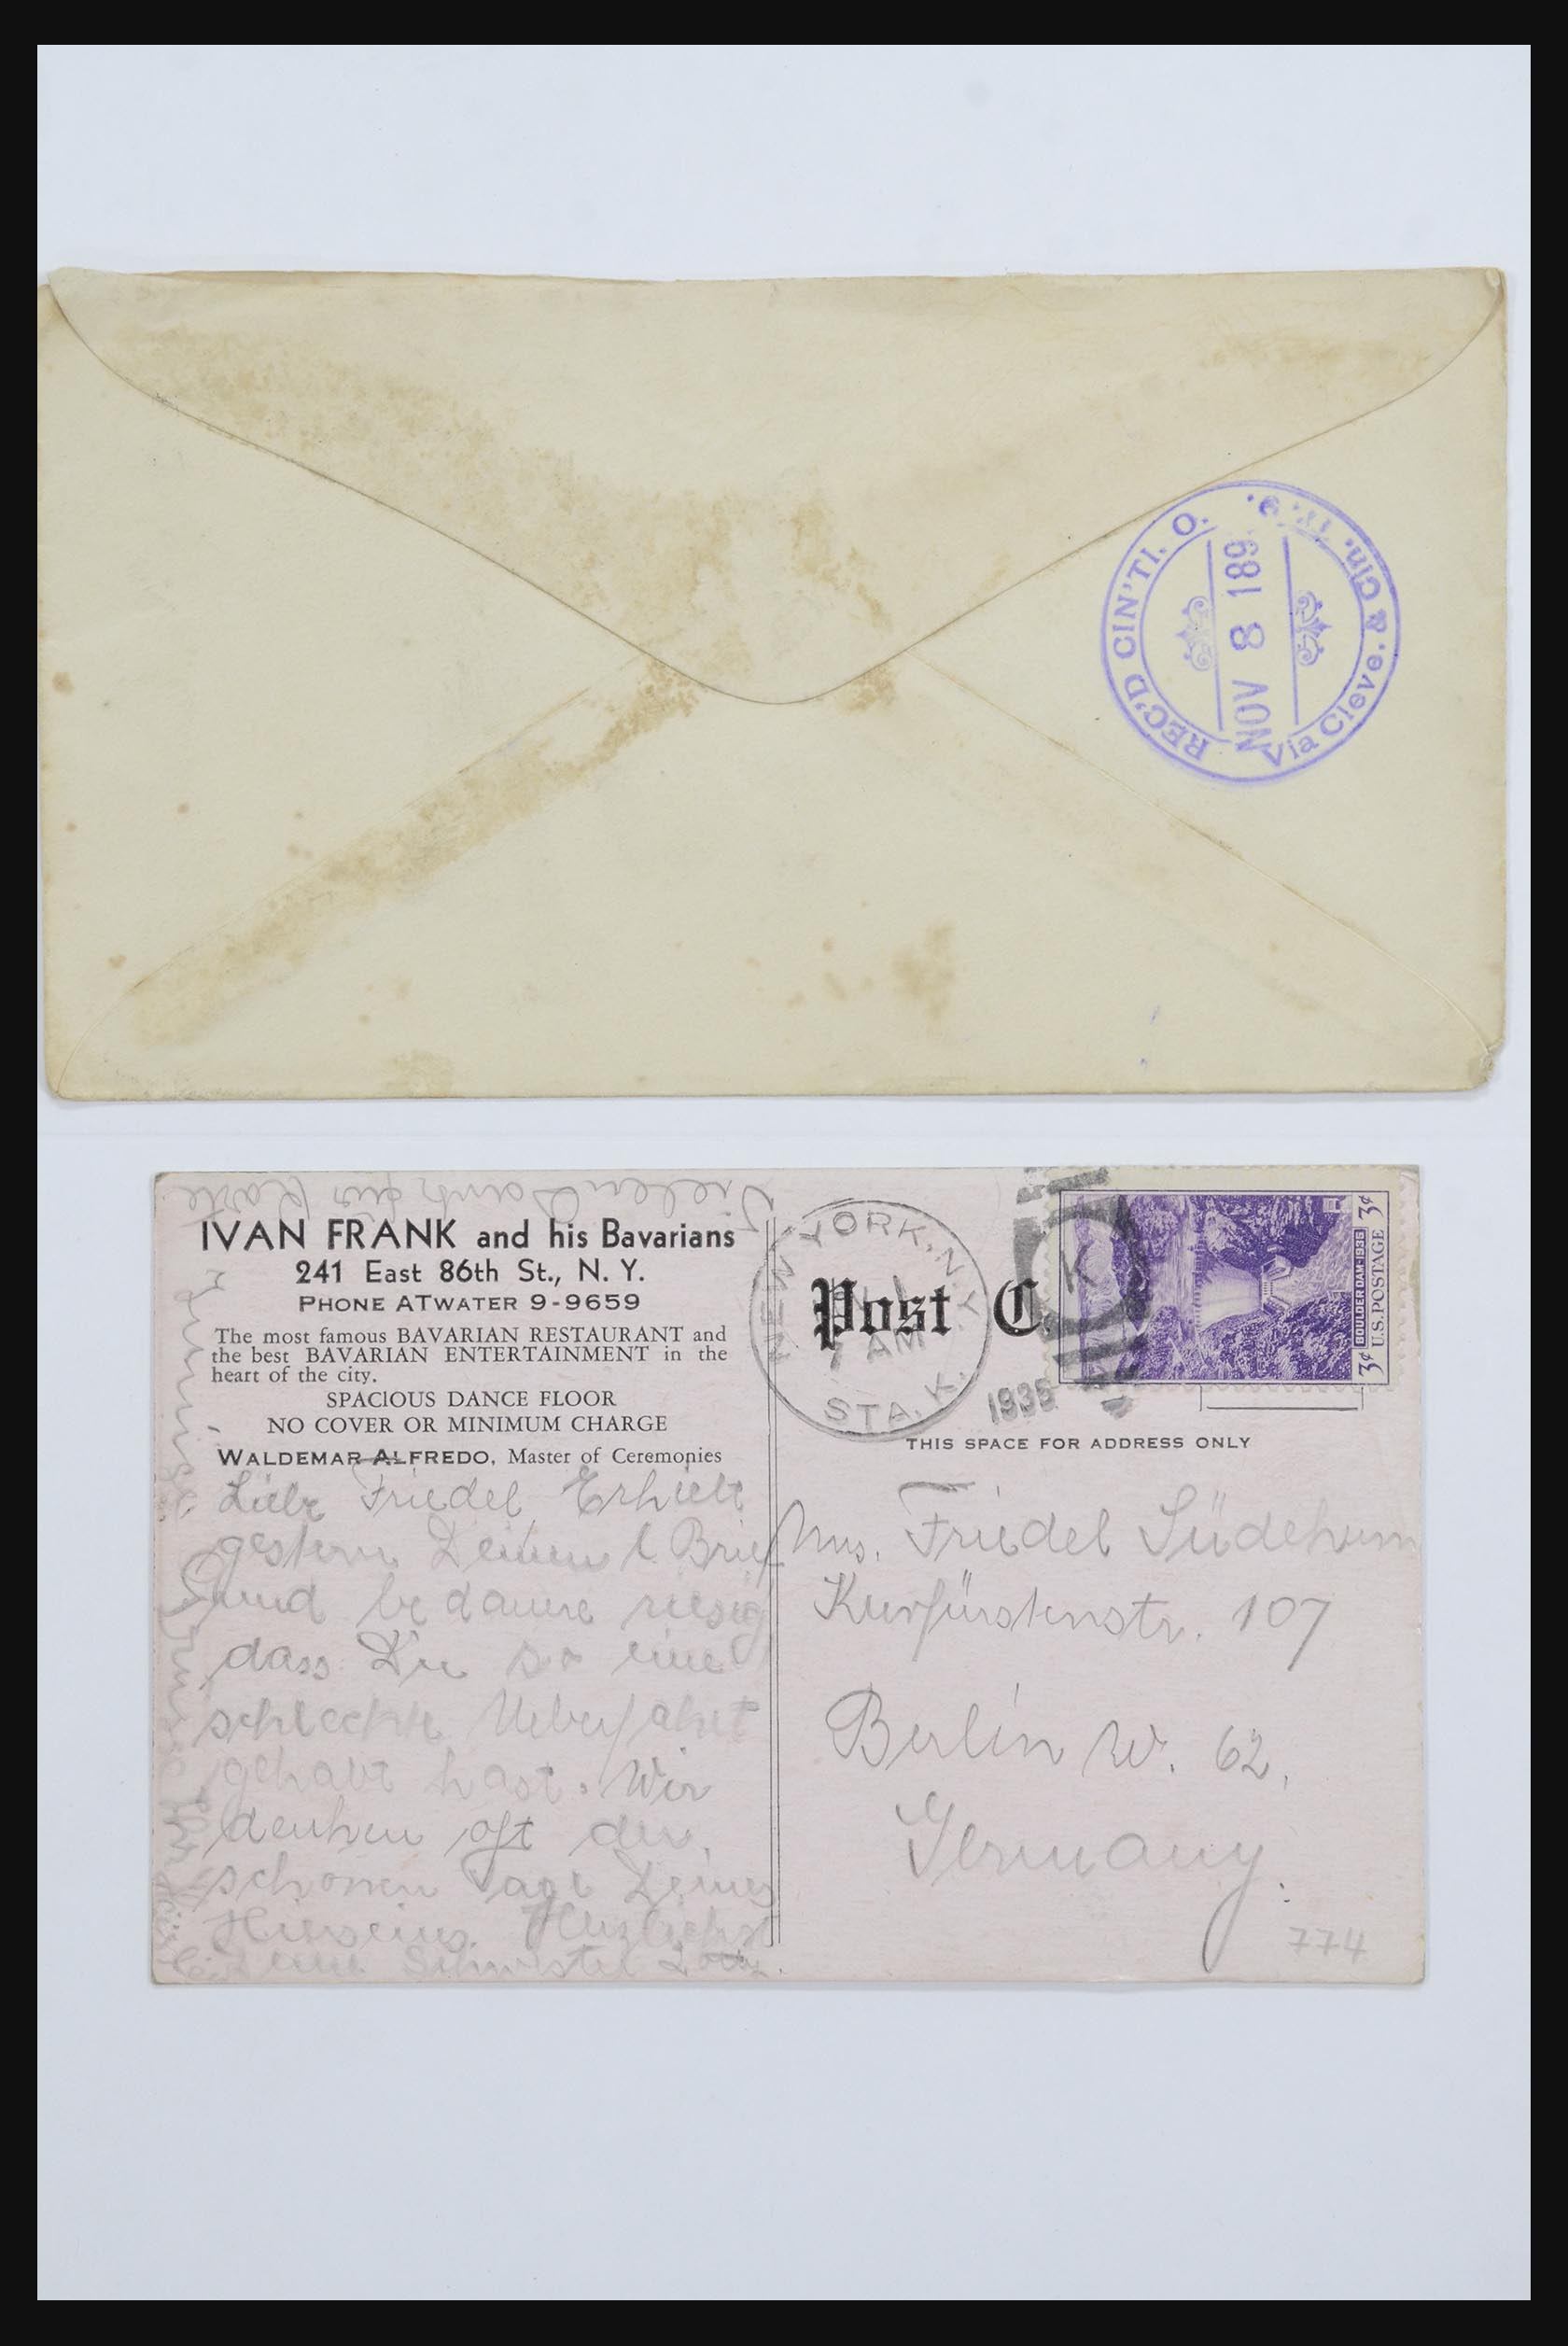 REC'D CIN'TI. O.
Via Cleve. & Cin.
NOV 8 189
IVAN FRANK and his Bavarians
241 East 86th St., N. Y.
PHONE ATWATER 9-9659
The most famous BAVARIAN RESTAURANT and
the best BAVARIAN ENTERTAINMENT in the
heart of the city.
SPACIOUS DANCE FLOOR
NO COVER OR MINIMUM CHARGE
WALDEMAR ALFREDO, Master of Ceremonies
Vielen Dank für Karte
Liebe Friedel, Erhielt
gestern Deinen l. Brief
und bedaure riesig
dass Du so eine
schlechte Ueberfahrt
gehabt hast. Wir
denken oft der
schönen Tage Deines
Hierseins. Herzlichst
Deine Schwester
Post C
NEW YORK, N.Y.
7 AM
1935
STA. K.
K
3¢ BOULDER DAM·1935 3¢
U.S. POSTAGE
THIS SPACE FOR ADDRESS ONLY
Mrs. Friedel
Kurfürstenstr. 107
Berlin W. 62,
Germany.
774